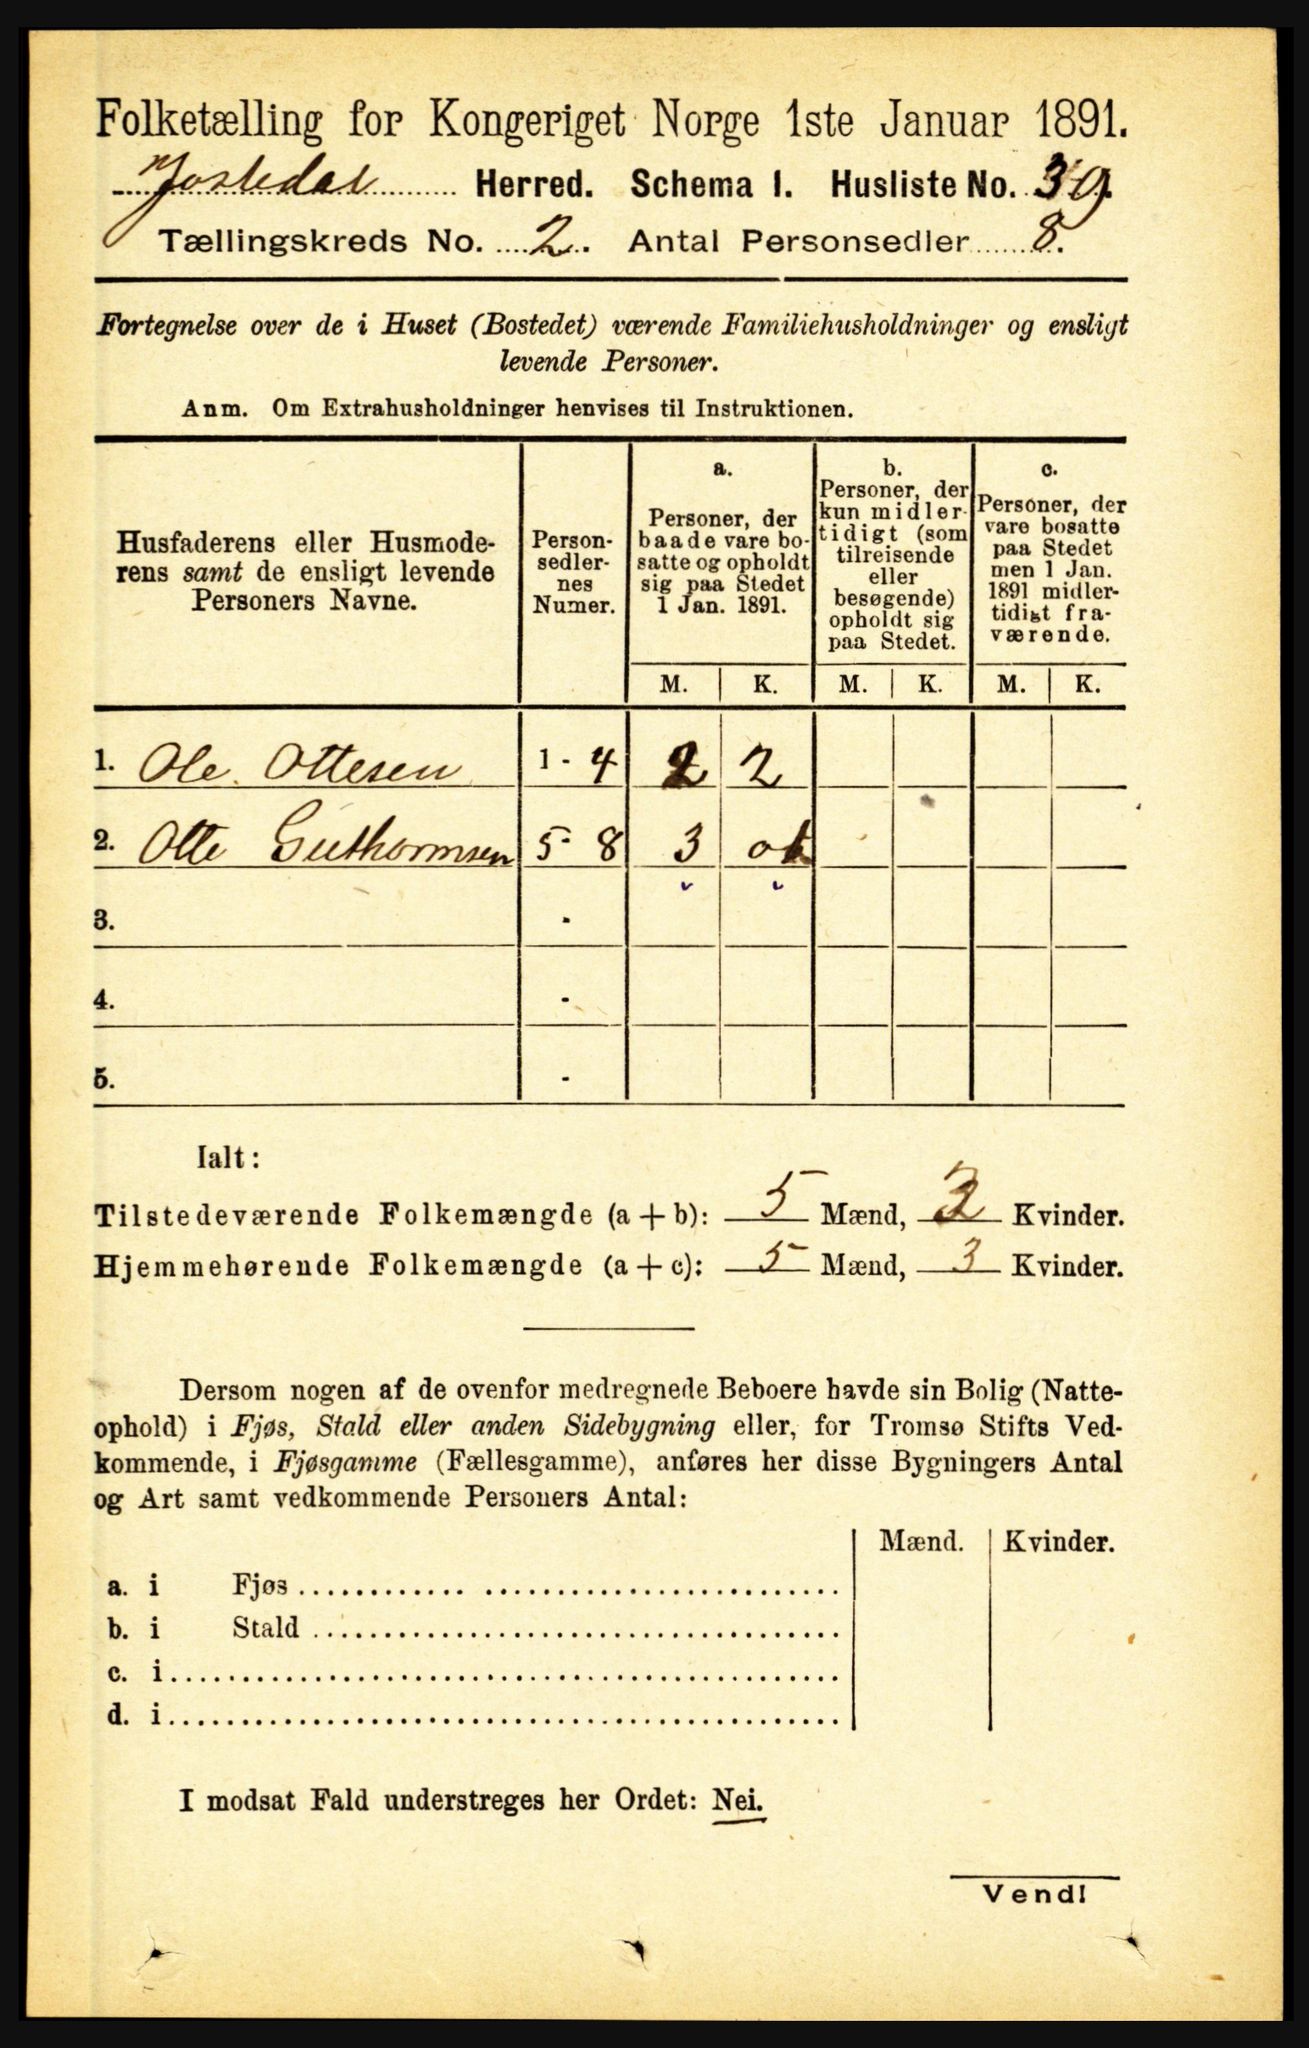 Folketælling for Kongeriget Norge 1ste Januar 1891.
Jostedal Herred. Schema 1. Husliste No. 39.
Tællingskreds No. 2. Antal Personsedler 8.
Fortegnelse over de i Huset (Bostedet) værende Familiehusholdninger og ensligt
levende Personer.
Anm. Om Extrahusholdninger henvises til Instruktionen.
Husfaderens eller Husmode-
rens samt de ensligt levende
Personers Navne.
Person-
sedler-
nes
Numer.
a.
Personer, der
baade vare bo-
satte og opholdt
sig paa Stedet
1 Jan. 1891.
b.
Personer, der
kun midler-
tidigt (som
tilreisende
eller
besøgende)
opholdt sig
paa Stedet.
c.
Personer, der
vare bosatte
paa Stedet
men 1 Jan.
1891 midler-
tidigt fra-
værende.
M. K. M. K. M. K.
1. Ole Ottesen 1 - 4 2 2
2. Otte Guthormsen 5 - 8 3
3. -
4. -
5. -
Ialt:
Tilstedeværende Folkemængde (a + b): 5 Mænd, Kvinder.
Hjemmehørende Folkemængde (a + c): 5 Mænd, 3 Kvinder.
Dersom nogen af de ovenfor medregnede Beboere havde sin Bolig (Natte-
ophold) i Fjøs, Stald eller anden Sidebygning eller, for Tromsø Stifts Ved-
kommende, i Fjøsgamme (Fællesgamme), anføres her disse Bygningers Antal
og Art samt vedkommende Personers Antal:
Mænd. Kvinder.
a. i Fjøs
b. i Stald
c. i
d. i
I modsat Fald understreges her Ordet: Nei.
Vend!